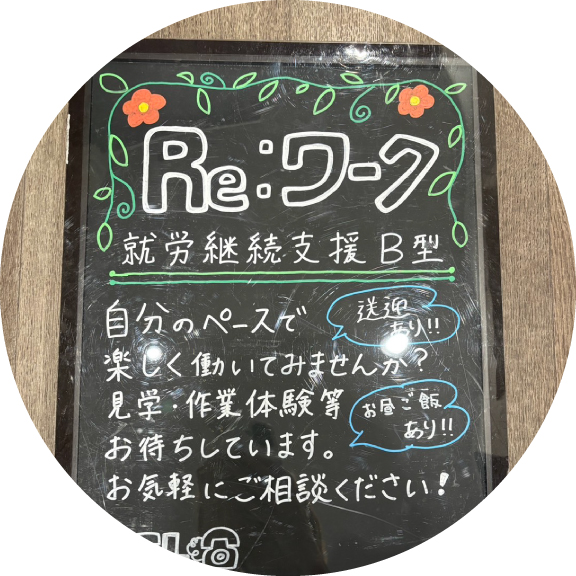 Re:ワーク
就労継続支援B型
自分のペースで
送迎
あり!!
楽しく働いてみませんか?
見学・作業体験等
お昼ご飯
あり!!
お待ちしています。
お気軽にご相談ください!